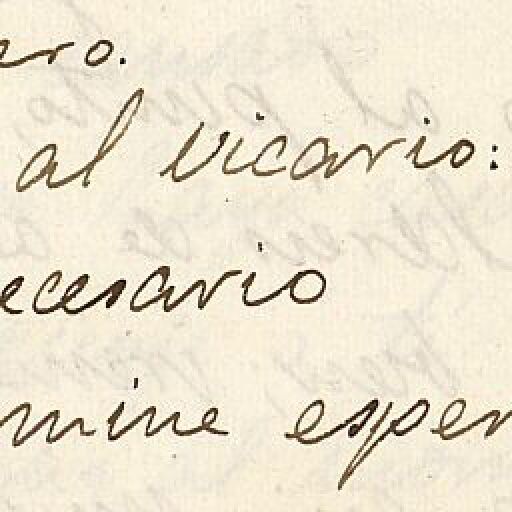 ero.
al vicario:
ecesario
mine esper